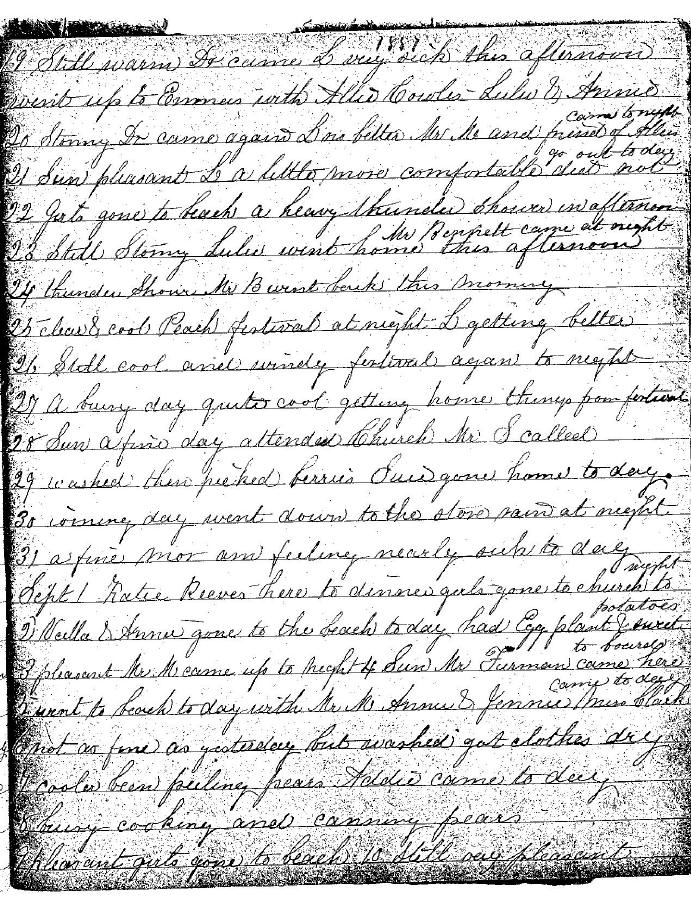 1887
19 Still warm Dr came L very sick this afternoon
went up to Emmas with Allie Cowles Lulu & Annie
came to night
20 Stormy Dr came again L no better Mr Mc and friend of Allies
go out to day
21 Sun pleasant L a little more comfortable did not
22 Girls gone to beach a heavy thunder shower in afternoon
Mr Bennett came at night
23 Still Stormy Lulu went home this afternoon
24 thunder Shour Mr B went back this morning
25 clear & cool Peach festival at night L getting better
26 Still cool and windy festival again to night
27 A busy day quite cool getting home things from festival
28 Sun a fine day attended Church Mr S called
29 washed then picked berries Susie gone home to day
30 ironing day went down to the store rain at night
31 a fine mor am feeling nearly sick to day
night
Sept 1 Katie Reeves here to dinner girls gone to church to
potatoes
2 & Annie gone to the beach to day had Egg plant & sweet
to board
3 pleasant Mr M came up to night 4 Sun Mr Furman came here
came to day
5 went to beach to day with Mr M Annie & Jennie Miss Clark
6 not as fine as yesterday but washed got clothes dry
7 cooler been peeling pears Addie came to day
8 busy cooking and canning pears
9 pleasant girls gone to beach 10 still very pleasant